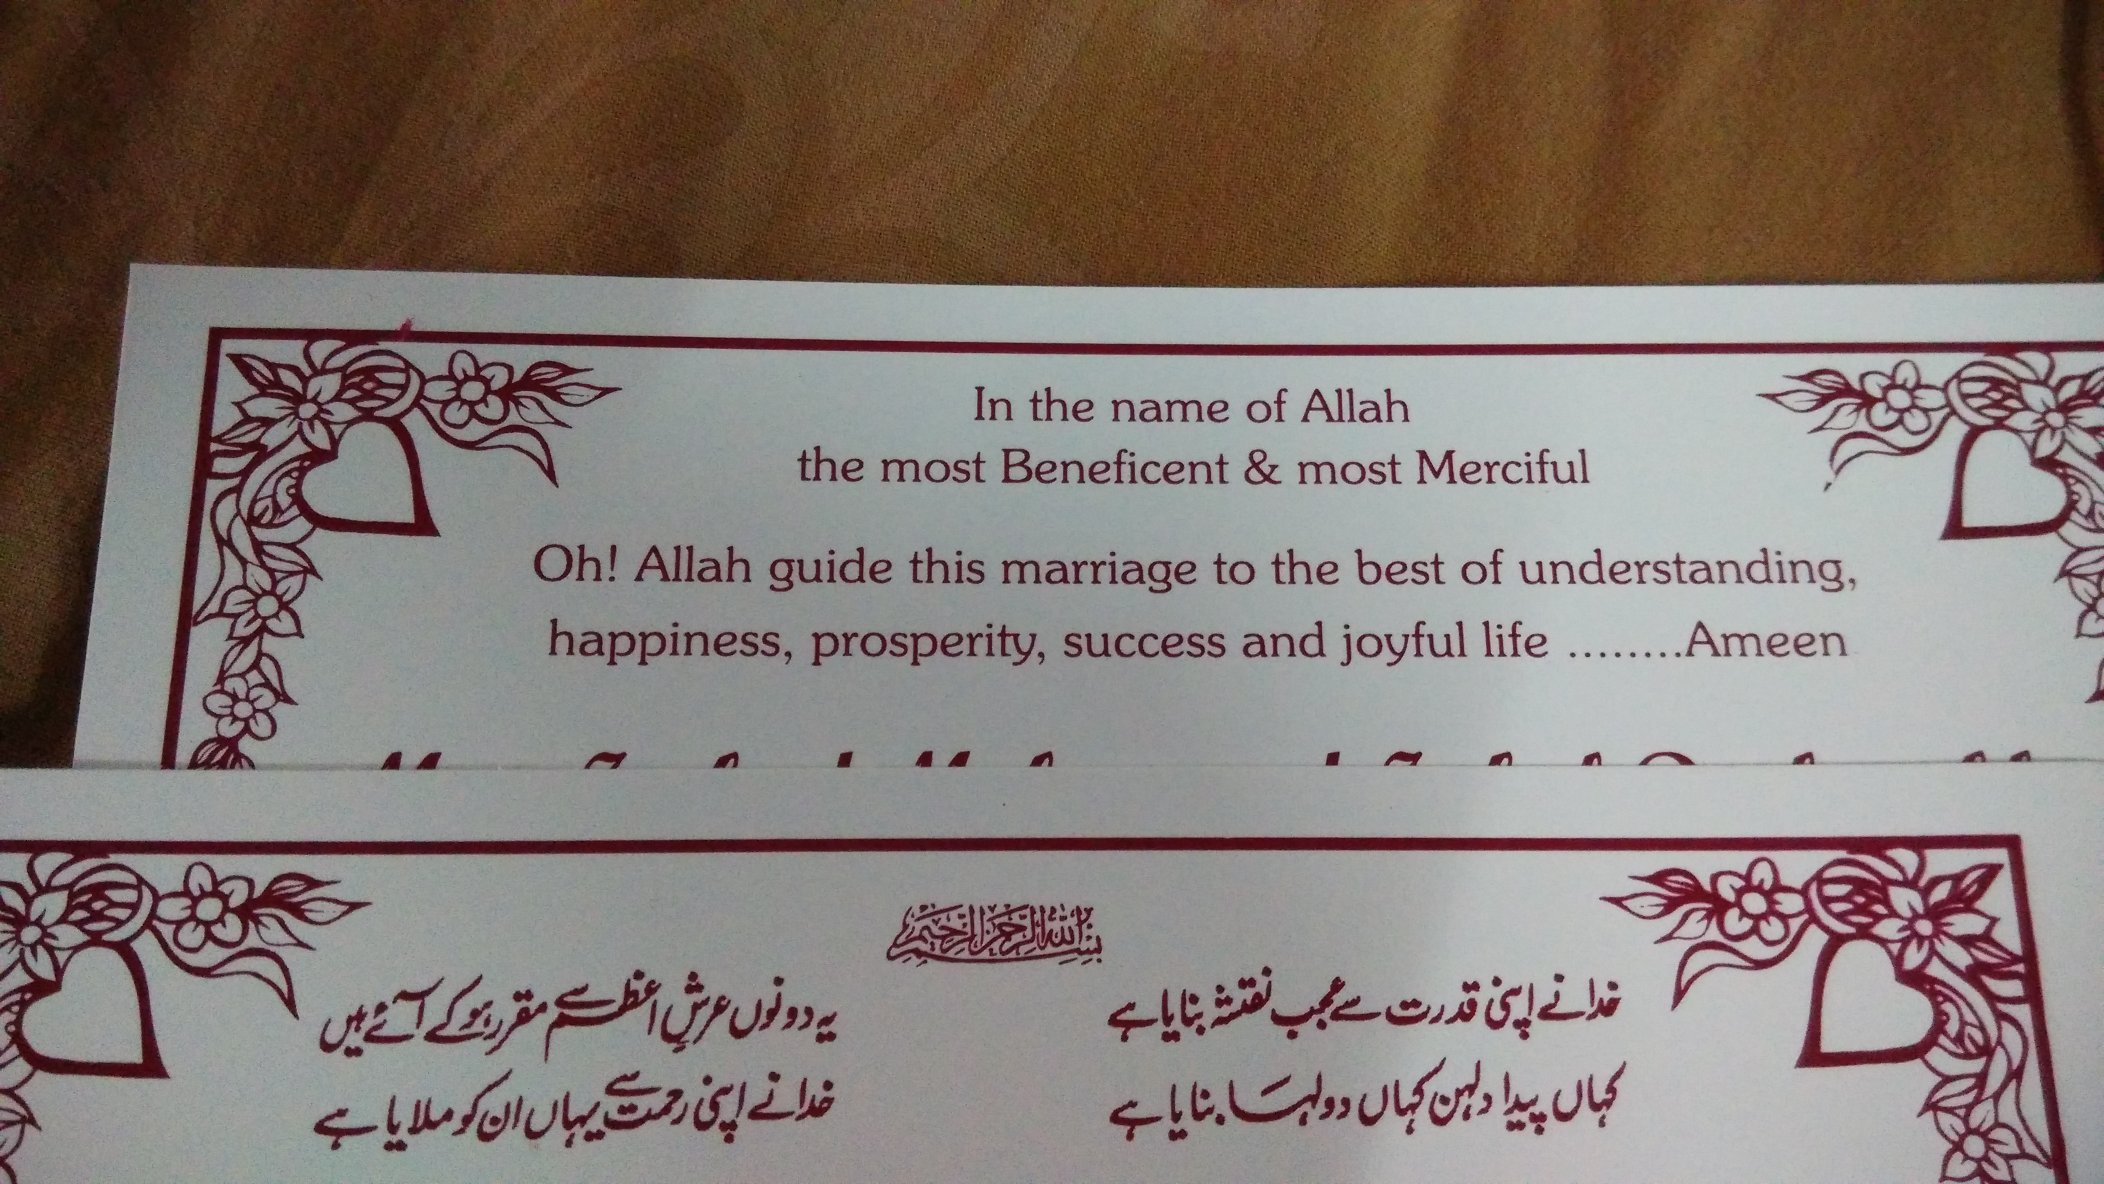 In the name of Allah
the most Beneficent & most Merciful
Oh! Allah guide this marriage to the best of understanding,
happiness, prosperity, success and joyful life ........Ameen
بسم الله الرحمن الرحيم
خدا نے اپنی قدرت سے عجب نقشہ بنایا ہے
کہاں پیدا دلہن کہاں دولہا بنایا ہے
یہ دونوں عرشِ اعظم سے مقرر ہوکے آئے ہیں
خدا نے اپنی رحمت سے یہاں ان کو ملایا ہے